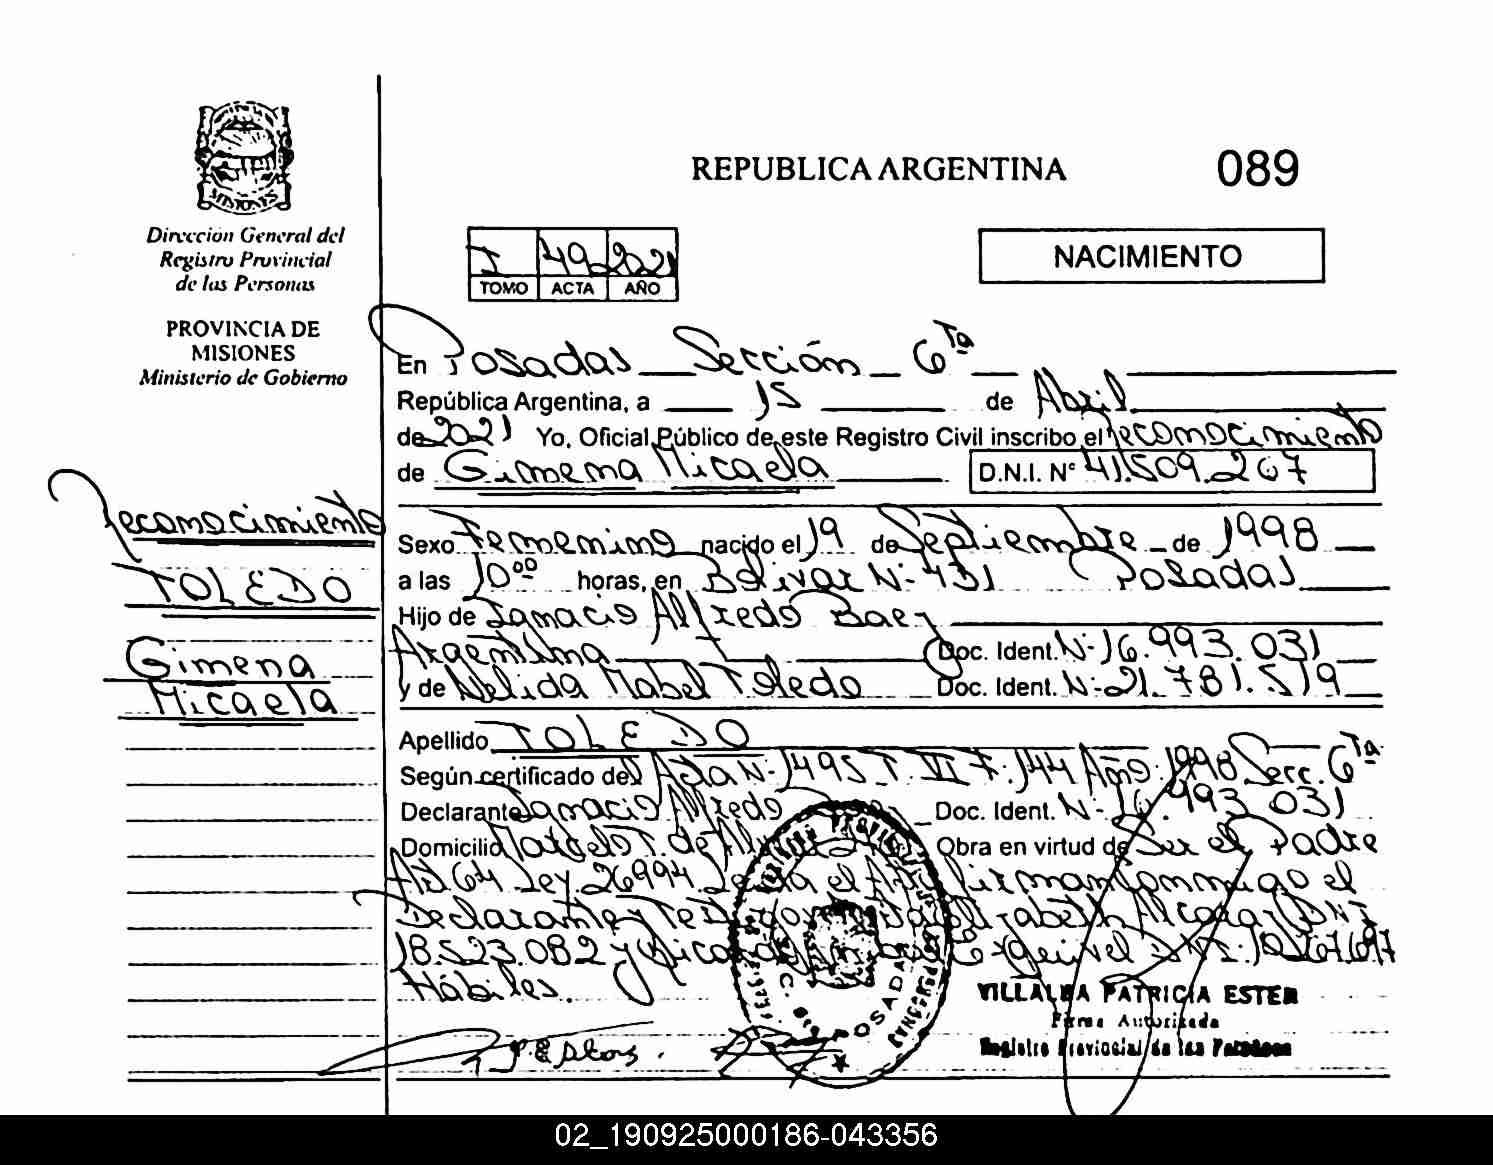 MISIONES
Dirección General del
Registro Provincial
de las Personas
PROVINCIA DE
MISIONES
Ministerio de Gobierno
REPUBLICA ARGENTINA
089
I 49 2021
TOMO ACTA AÑO
NACIMIENTO
En Posadas Sección 6ta
República Argentina, a 15 de Abril
de 2021 Yo, Oficial Público de este Registro Civil inscribo el reconocimiento
de Gimena Micaela D.N.I. N° 41.509.267
reconocimiento
TOLEDO
Gimena
Micaela
Sexo Femenino nacido el 19 de Septiembre de 1998
a las 10 00 horas, en Bolivar N- 431 Posadas
Hijo de Ignacio Alfredo Baez
Argentina Doc. Ident. N- 16.993.031
y de Nelida Mabel Toledo Doc. Ident. N- 21.781.519
Apellido TOLEDO
Según certificado del Acta N- 1495 T VI F. 144 Año 1998 Secc. 6ta
Declarante Ignacio Alfredo Doc. Ident. N- 16.993.031
Domicilio Marcelo T. de Obra en virtud de Ser el Padre
Art 64 Ley 26994 Leída el Acta firman conmigo el
Declarante y Testigos Elizabeth DNI
18.523.082 y Ricardo DNI:
Hábiles.
POSADAS
VILLALBA PATRICIA ESTER
Firma Autorizada
Registro Provincial de las Personas
02_190925000186-043356